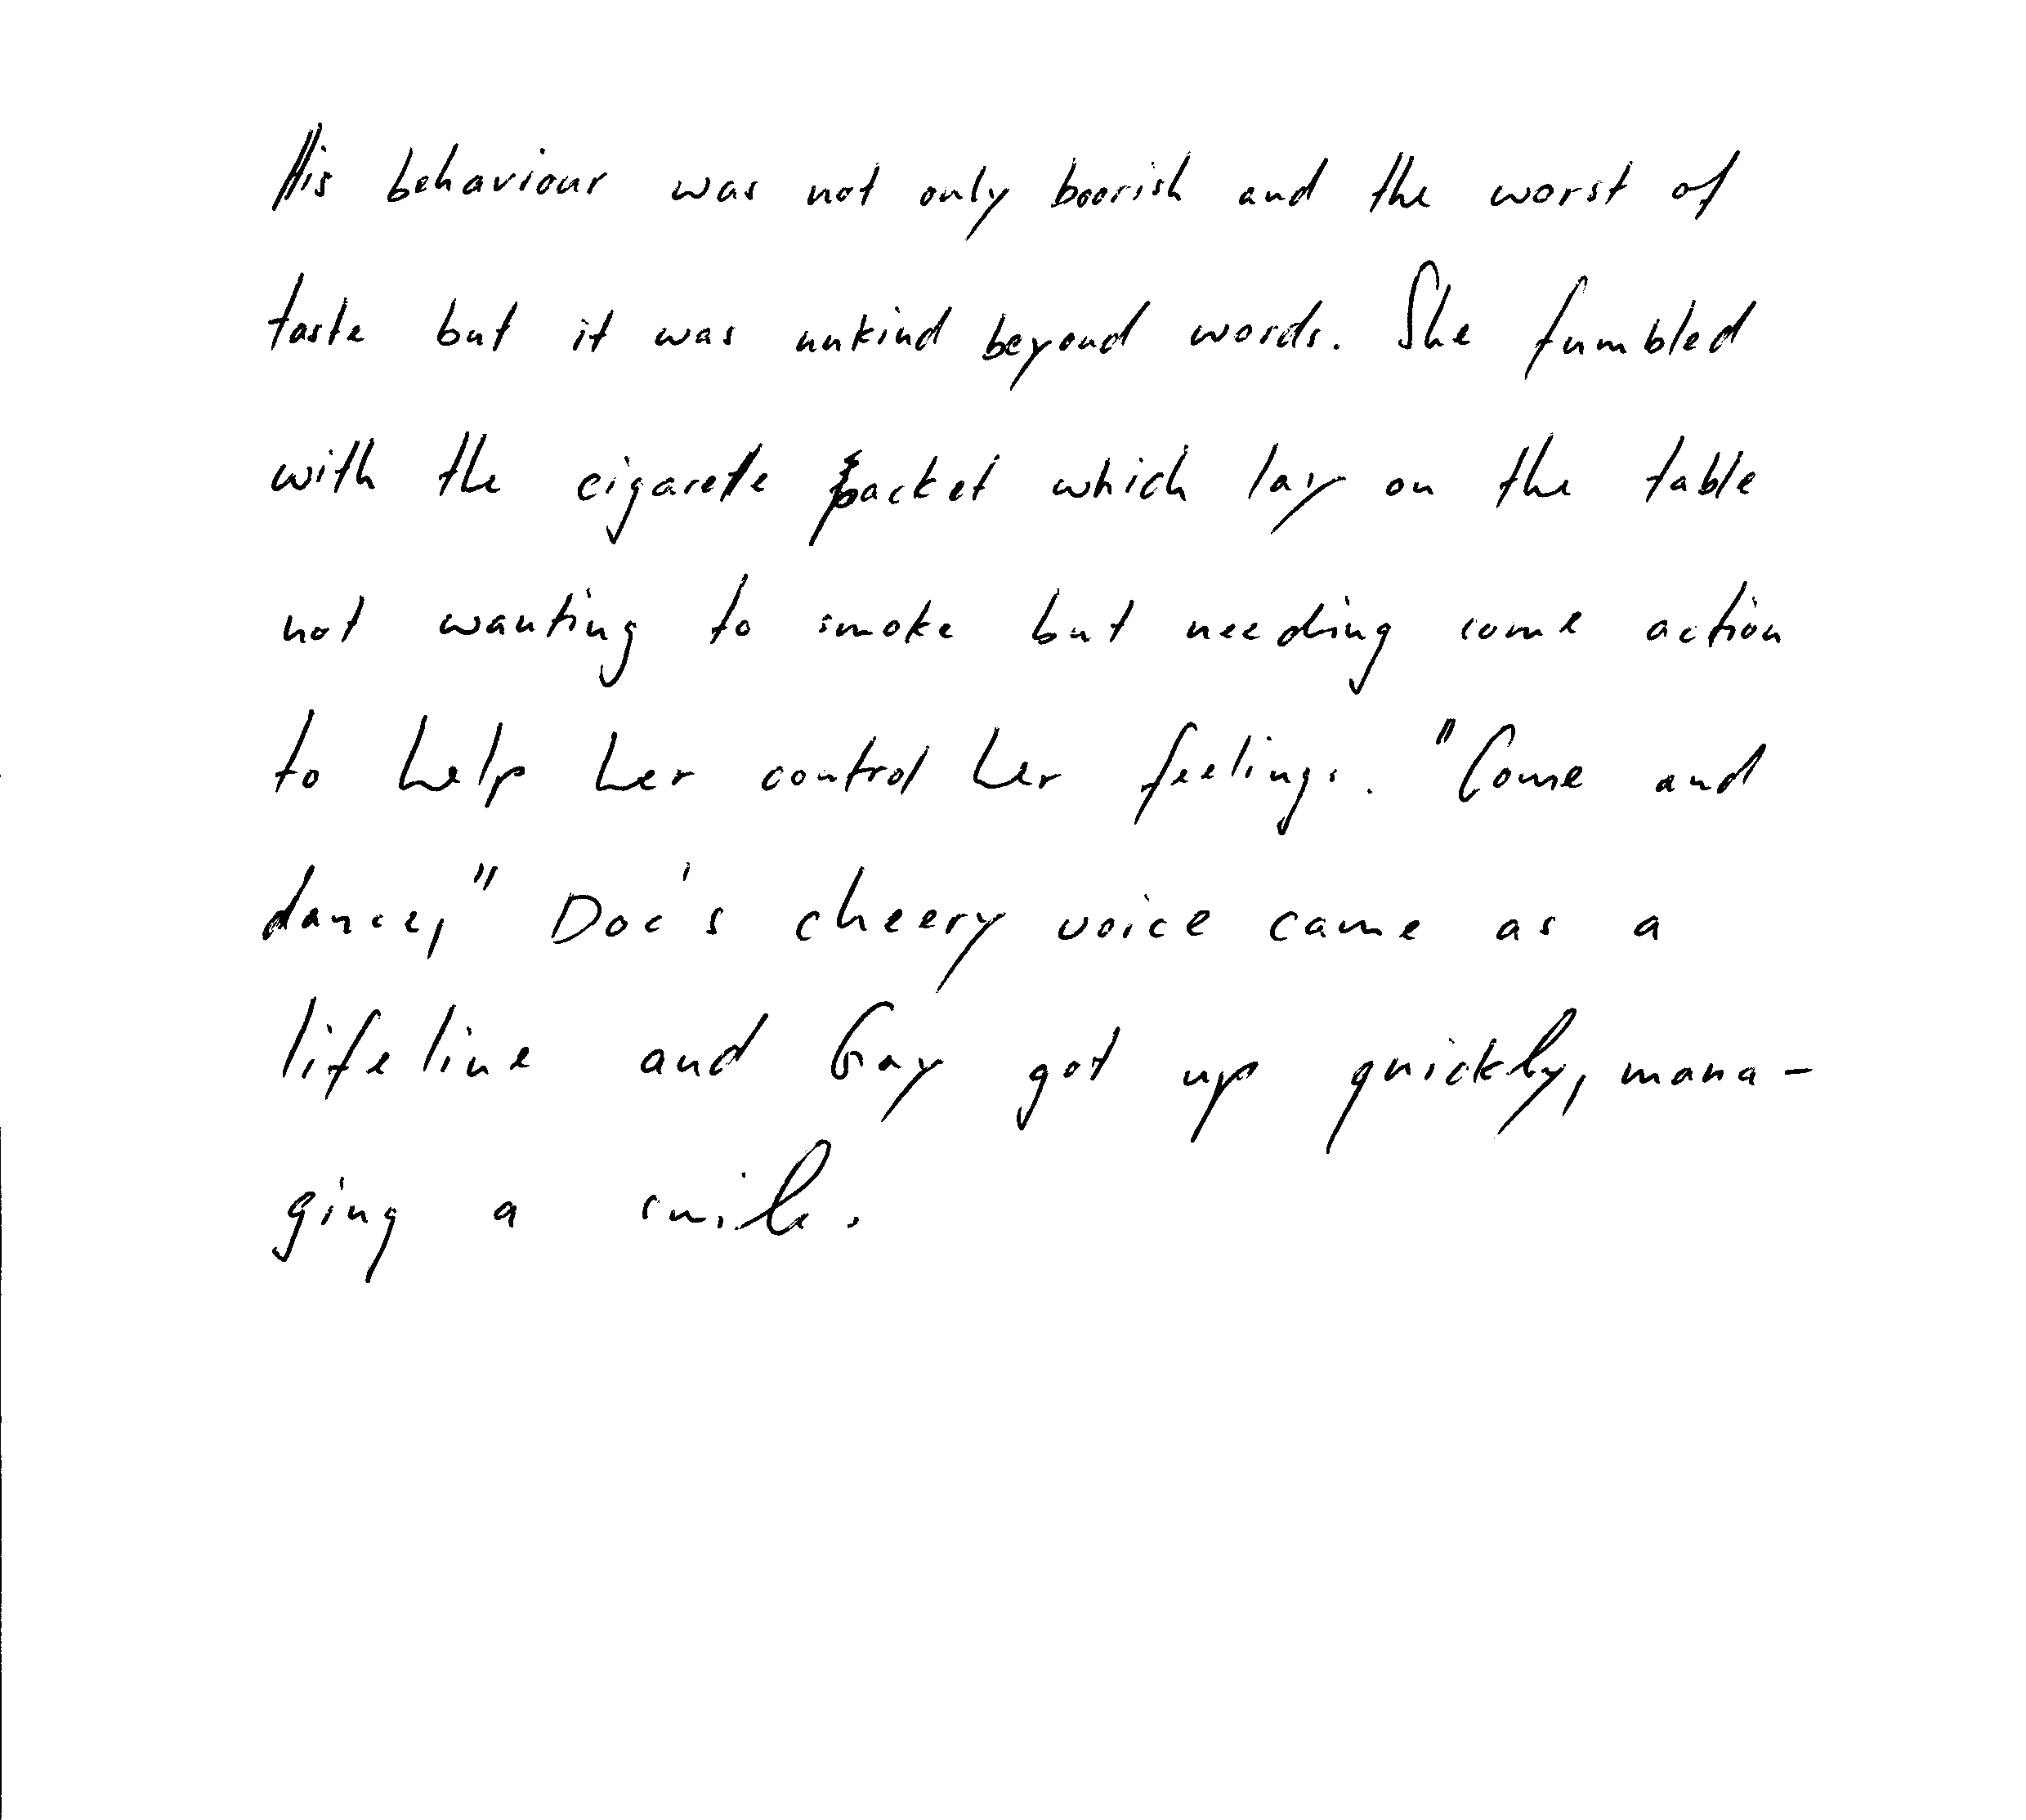 His behaviour was not only boorish and the worst of
taste but it was unkind beyond words. She fumbled
with the cigarette packet which lay on the table
not wanting to smoke but needing some action
to help her control her feelings. "Come and
dance," Doc's cheery voice came as a
lifeline and Gay got up quickly, mana-
ging a smile.